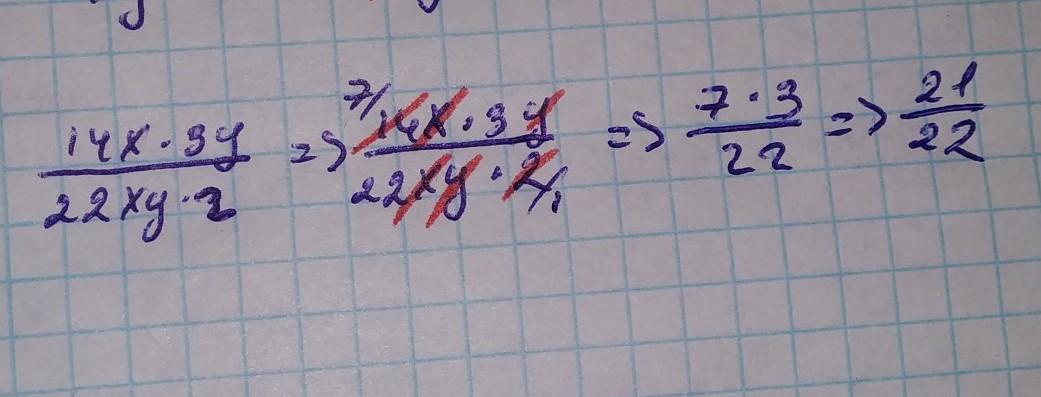 14x · 3y / 22xy · 2 => 7/ 14x · 3y / 22xy · 2/1 => 7 · 3 / 22 => 21 / 22